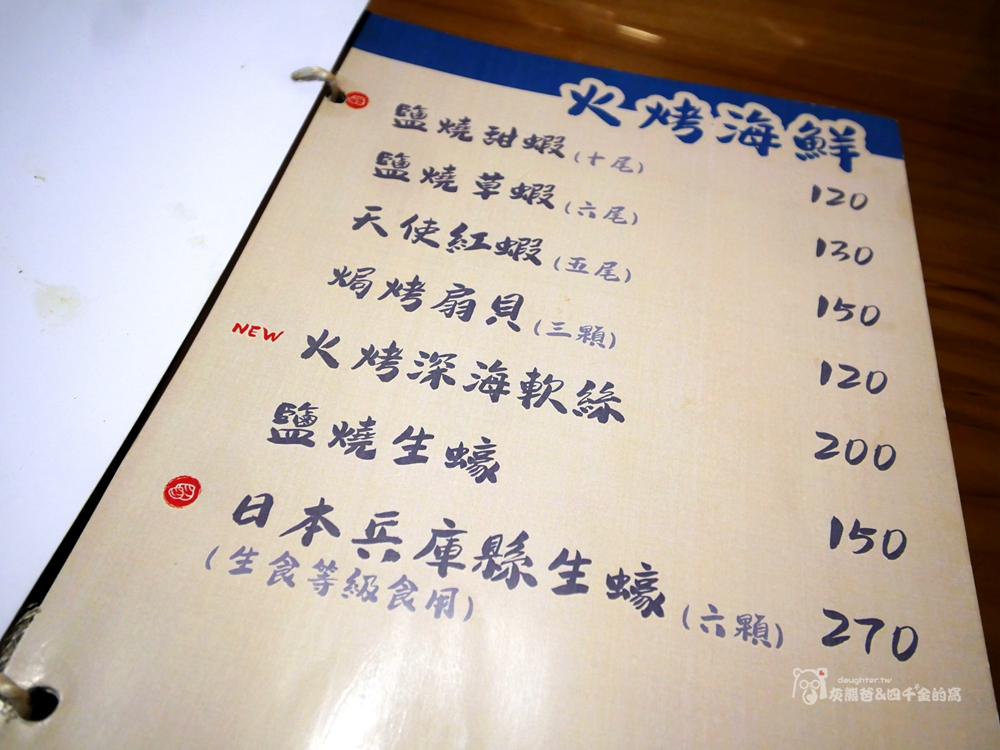 火烤海鮮
鹽燒甜蝦(十尾) 120
鹽燒草蝦(六尾) 130
天使紅蝦(五尾) 150
焗烤扇貝(三顆) 120
NEW 火烤深海軟絲 200
鹽燒生蠔 150
日本兵庫縣生蠔(六顆) 270
(生食等級食用)
daughter.tw
灰熊爸&四千金的窩